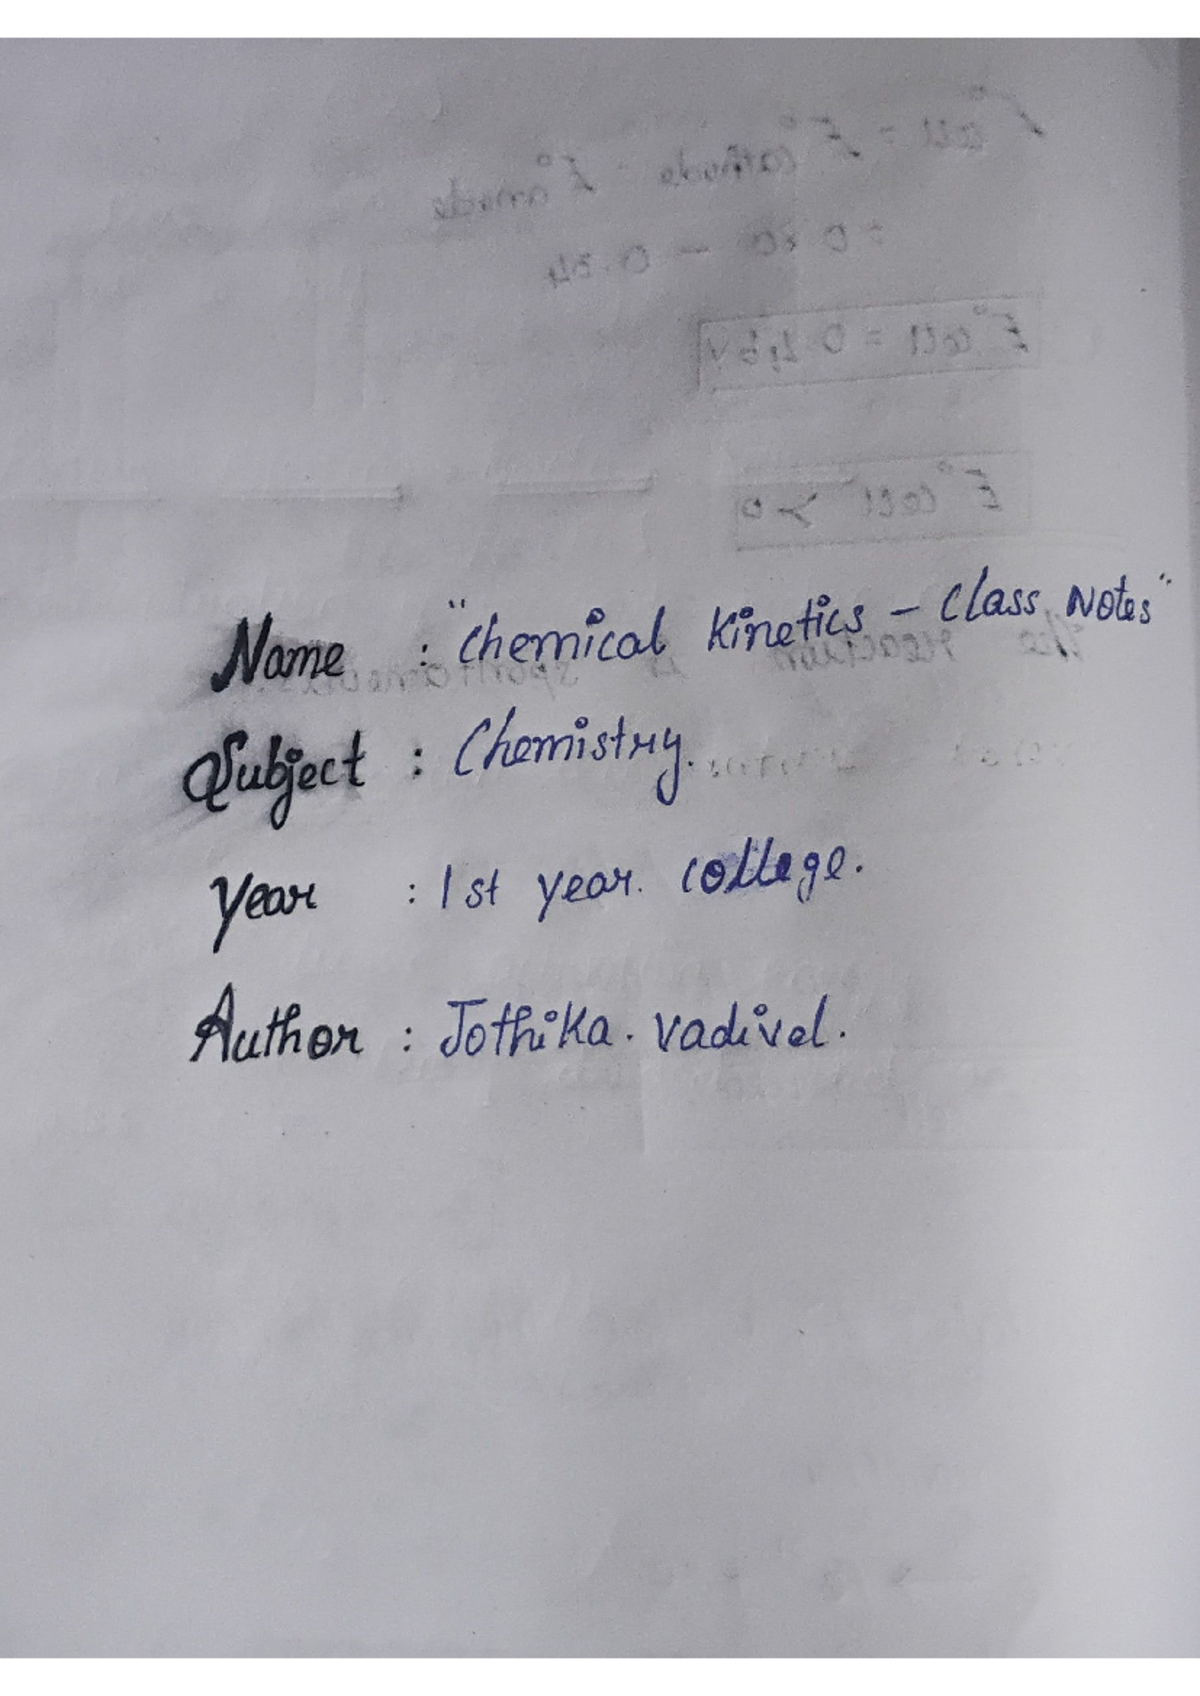 Name : "Chemical Kinetics - Class Notes"
Subject : Chemistry.
Year : 1st year. college.
Author : Jothika. Vadivel.